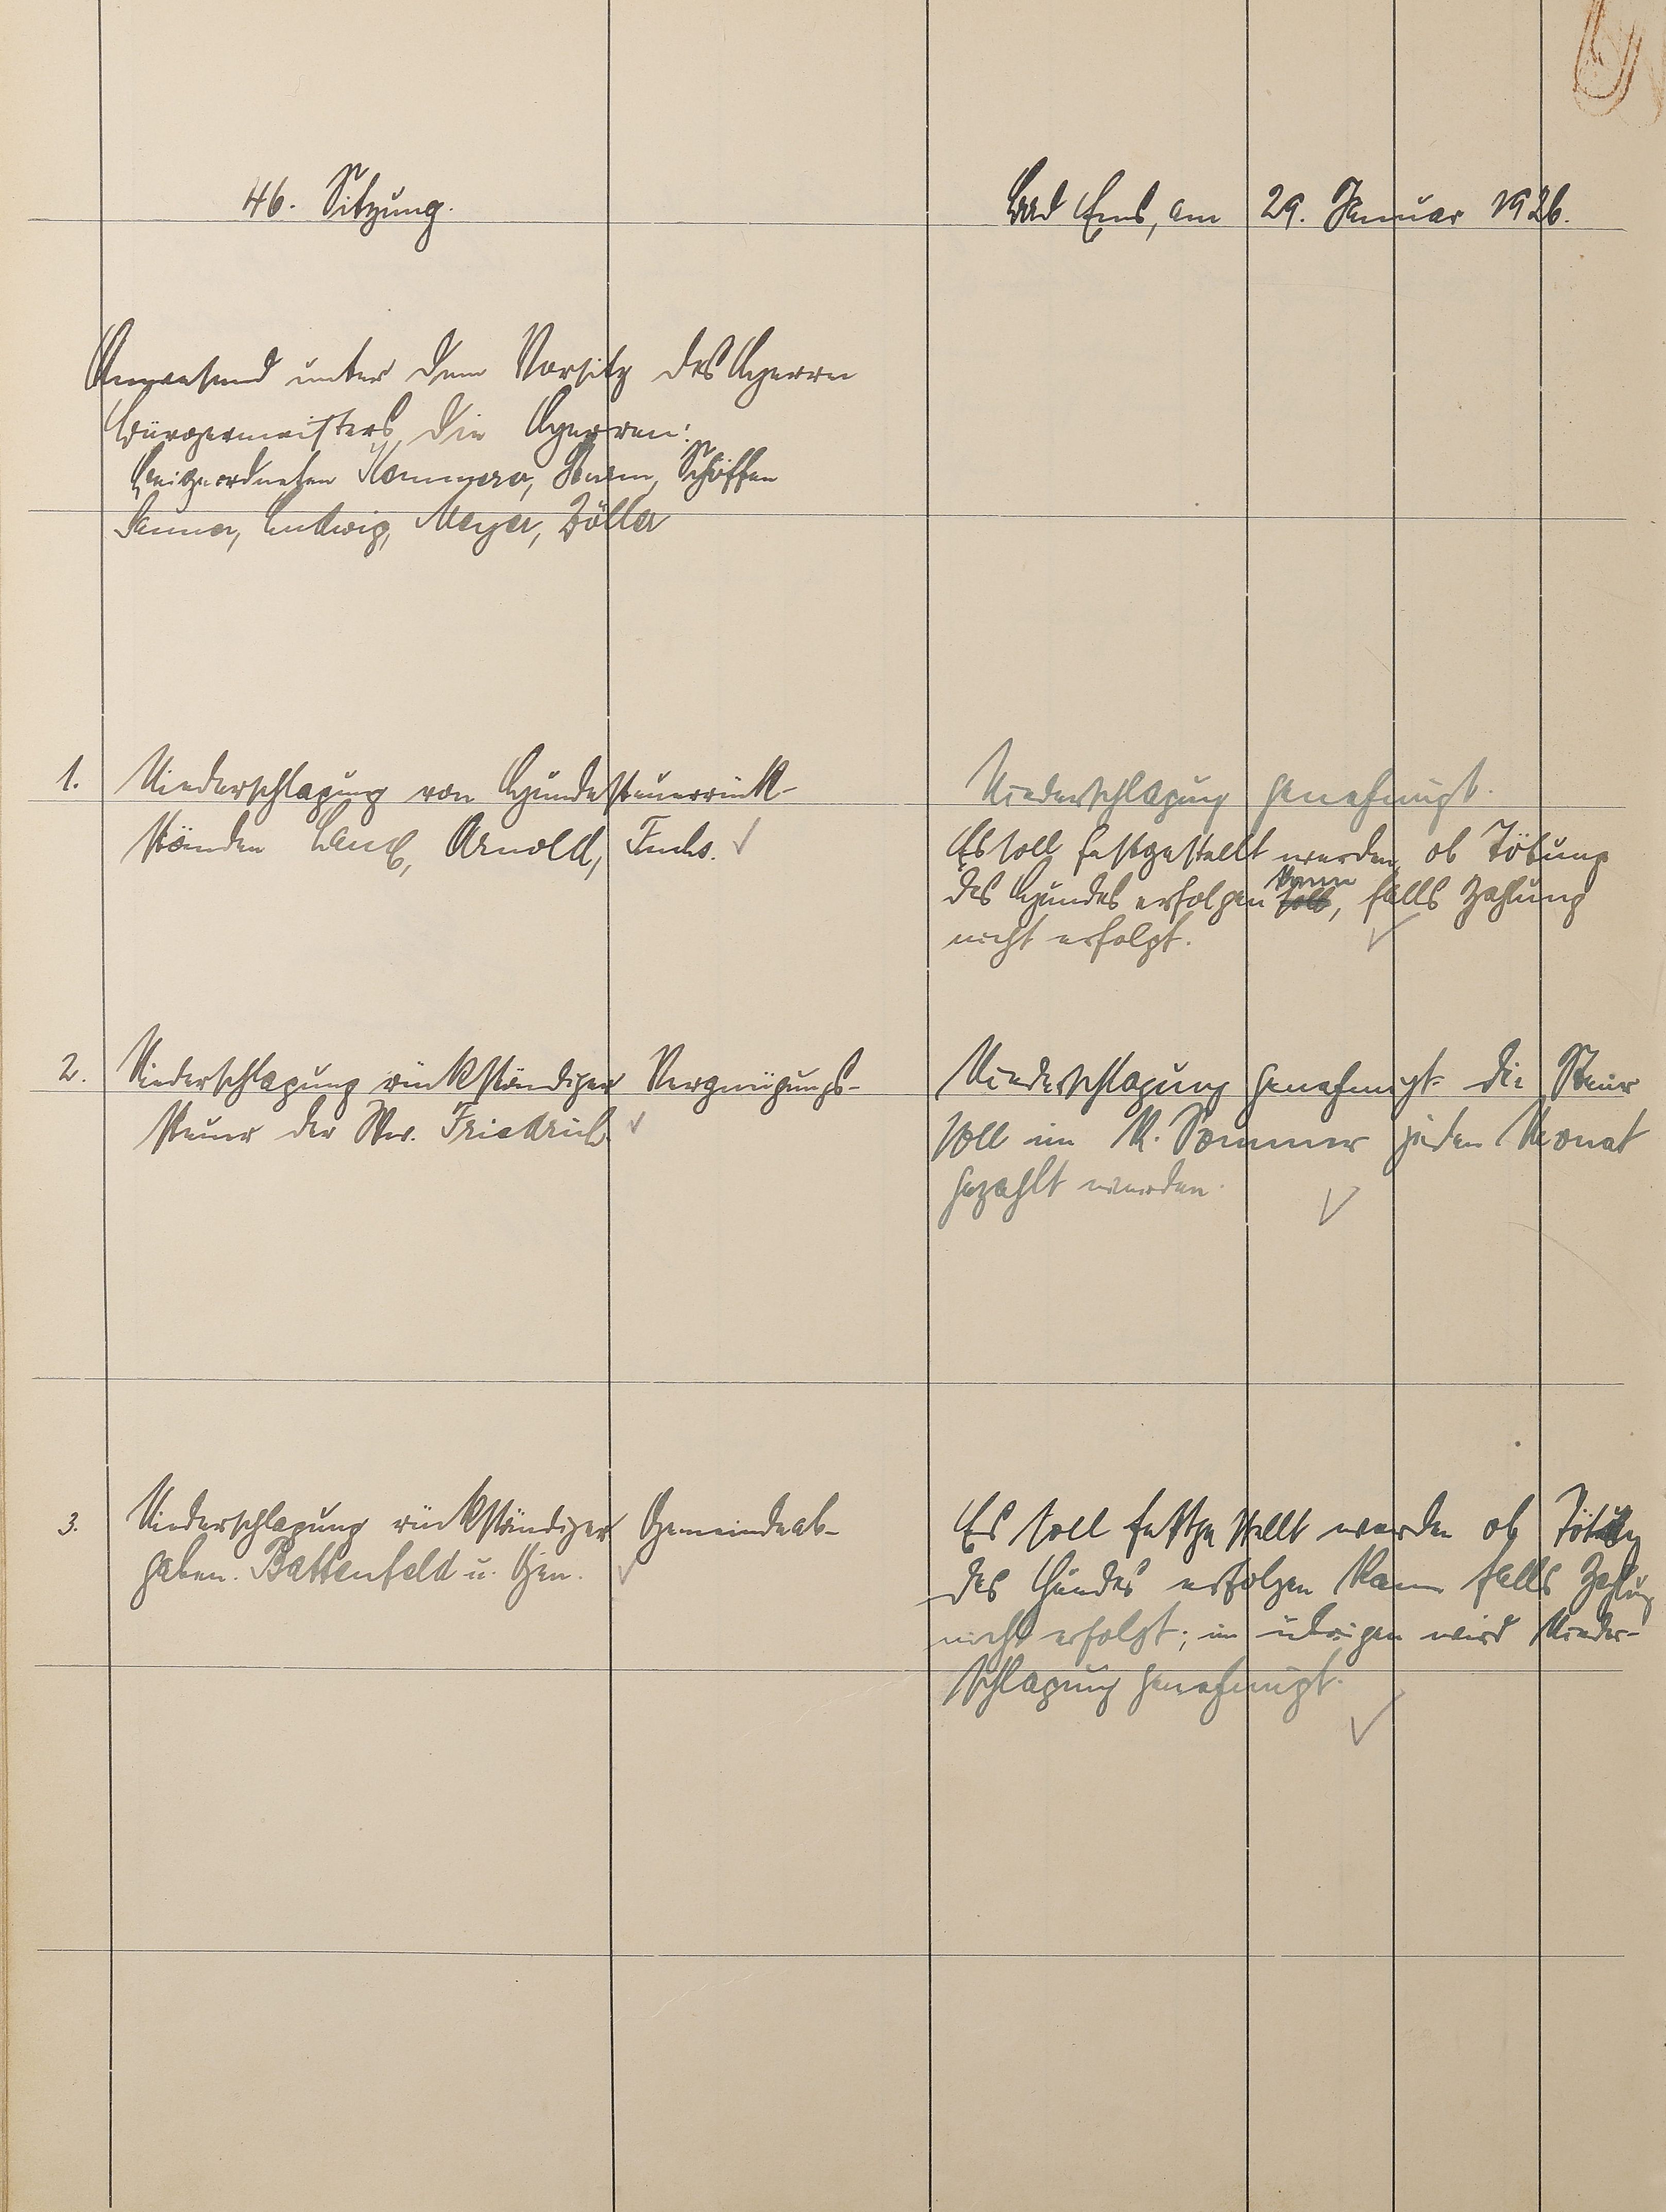 46. Sitzung.
Bad Ems, am 29. Januar 1926.
Anwesend unter dem Vorsitz des Herrn
Bürgermeisters die Herren:
Beigeordneten Kammerer, Schöffen
Ludwig, Meyer, Zöller
1. Niederschlagung von Hundesteuerrück-
ständen Arnold, Fuchs.
Niederschlagung genehmigt.
Es soll festgestellt werden, ob Tötung
des Hundes erfolgen kann, falls Zahlung
nicht erfolgt.
2. Niederschlagung rückständiger Vergnügungs-
steuer der Friedrich.
Niederschlagung genehmigt. Die Steuer
soll im K. Sommer jeden Monat
gezahlt werden.
3. Niederschlagung rückständiger Gemeindeab-
gaben. Battenfeld u. Gen.
Es soll festgestellt werden ob Tötung
des Hundes erfolgen kann falls Zahlung
nicht erfolgt; im übrigen wird Nieder-
schlagung genehmigt.